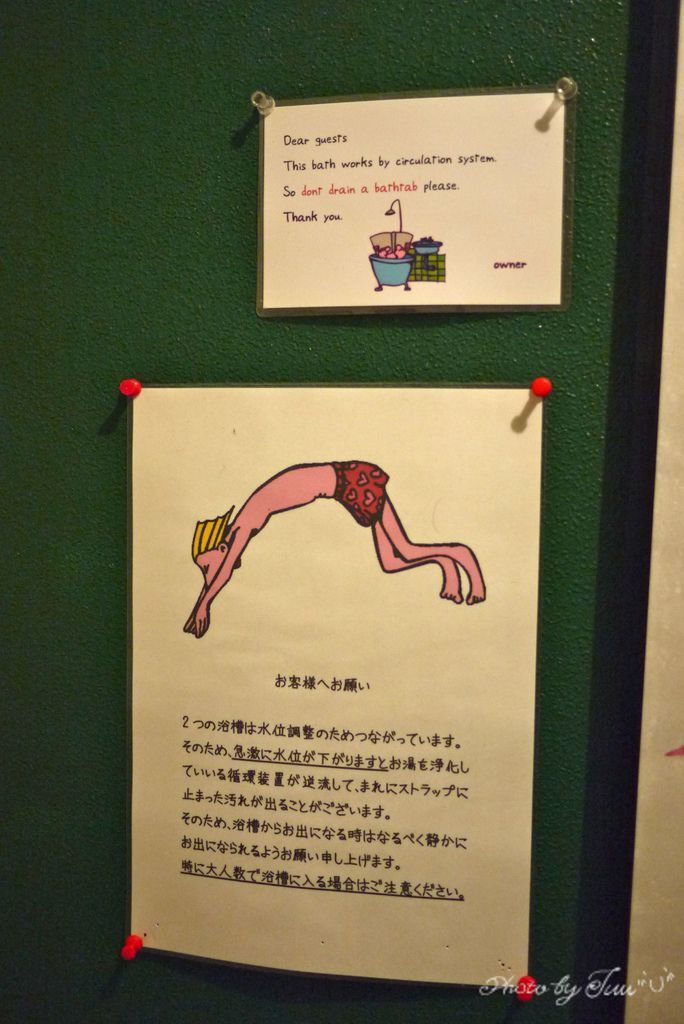 Dear guests
This bath works by circulation system.
So dont drain a bathtab please.
Thank you.
owner
お客様へお願い
2つの浴槽は水位調整のためつながっています。
そのため、急激に水位が下がりますとお湯を浄化し
ていいる循環装置が逆流して、まれにストラップに
止まった汚れが出ることがございます。
そのため、浴槽からお出になる時はなるべく静かに
お出になられるようお願い申し上げます。
特に大人数で浴槽に入る場合はご注意ください。
Photo by